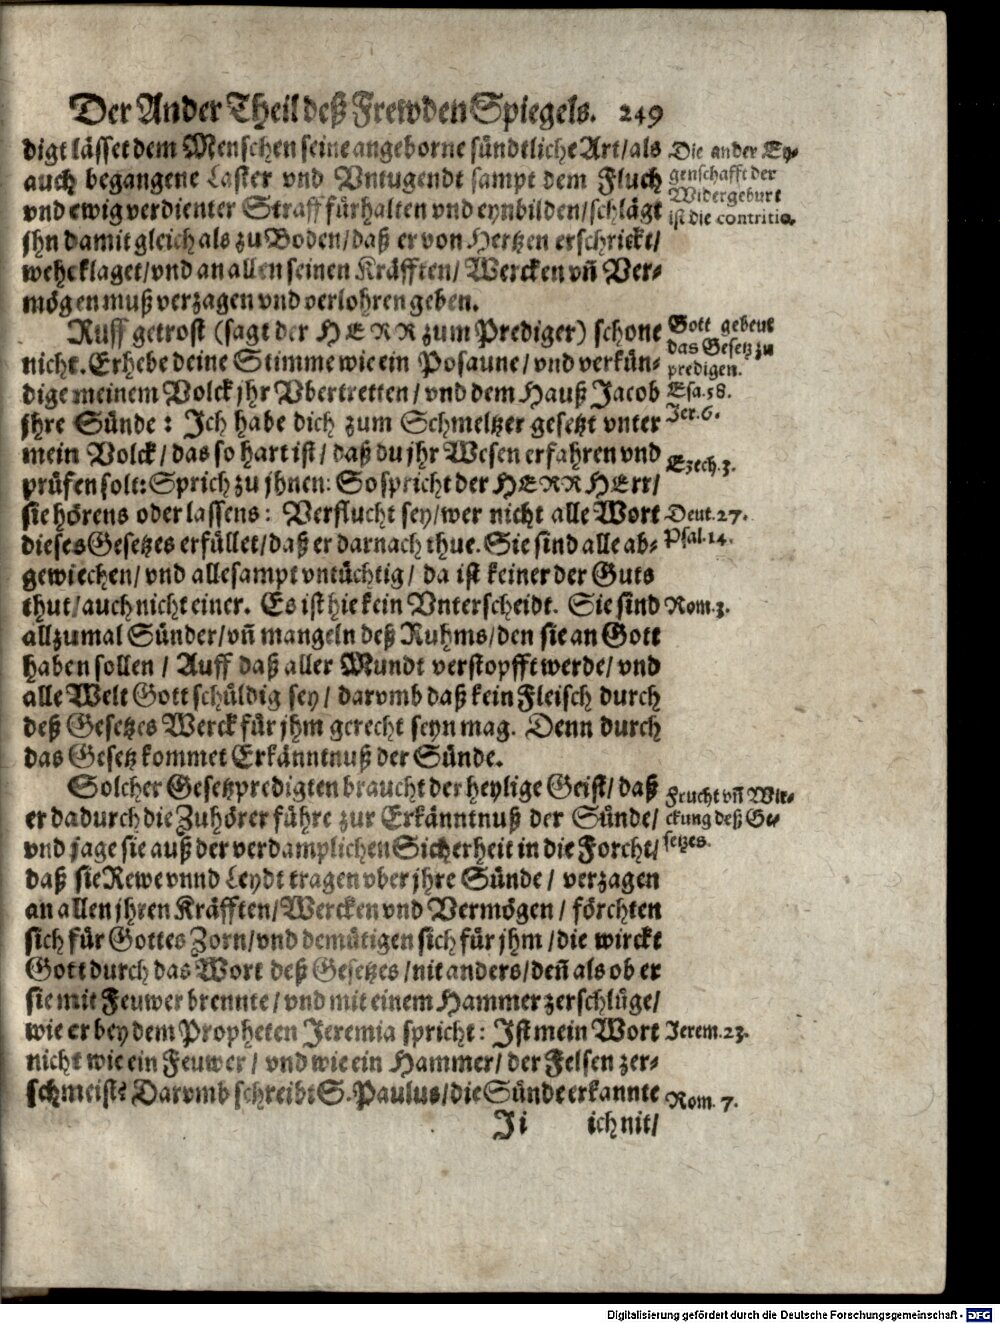 Der Ander Theil deß Frewden Spiegels. 249
digt lässet dem Menschen seine angeborne sündtliche Art/als
auch begangene Laster vnd Vntugendt sampt dem Fluch
vnd ewig verdienter Straff fürhalten vnd eynbilden/schlägt
jhn damit gleich als zu Boden/daß er von Hertzen erschrickt/
wehe klaget/vnd an allen seinen Kräfften/ Wercken vñ Ver-
mögen muß verzagen vnd verlohren geben.
Die ander Ey-
genschafft der
Widergeburt
ist die contritio.
Ruff getrost (sagt der HERR zum Prediger) schone
nicht. Erhebe deine Stimme wie ein Posaune/ vnd verkün-
dige meinem Volck jhr Vbertretten/ vnd dem Hauß Jacob
jhre Sünde: Ich habe dich zum Schmeltzer gesetzt vnter
mein Volck/ das so hart ist/ daß du jhr Wesen erfahren vnd
prüfen solt: Sprich zu jhnen: So spricht der HERR HErr/
sie hörens oder lassens: Verflucht sey/wer nicht alle Wort
dieses Gesetzes erfüllet/daß er darnach thue. Sie sind alle ab-
gewiechen/ vnd allesampt vntüchtig/ da ist keiner der Guts
thut/auch nicht einer. Es ist hie kein Vnterscheidt. Sie sind
allzumal Sünder/vñ mangeln deß Ruhms/den sie an Gott
haben sollen / Auff daß aller Mundt verstopfft werde/ vnd
alle Welt Gott schüldig sey/ darvmb daß kein Fleisch durch
deß Gesetzes Werck für jhm gerecht seyn mag. Denn durch
das Gesetz kommet Erkänntnuß der Sünde.
Gott gebeut
das Gesetz zu
predigen.
Esa. 58.
Jer. 6.
Ezech. 3.
Deut. 27.
Psal. 14.
Rom. 3.
Solcher Gesetzpredigten braucht der heylige Geist/ daß
er dadurch die Zuhörer führe zur Erkänntnuß der Sünde/
vnd jage sie auß der verdamplichen Sicherheit in die Forcht/
daß sie Rewe vnnd Leydt tragen vber jhre Sünde / verzagen
an allen jhren Kräfften/Wercken vnd Vermögen / förchten
sich für Gottes Zorn/vnd demütigen sich für jhm /die wirckt
Gott durch das Wort deß Gesetzes /nit anders/deñ als ob er
sie mit Feuwer brennte/ vnd mit einem Hammer zerschlüge/
wie er bey dem Propheten Jeremia spricht: Ist mein Wort
nicht wie ein Feuwer/ vnd wie ein Hammer/ der Felsen zer-
schmeist? Darvmb schreibt S. Paulus/die Sünde erkannte
Frucht vñ Wir-
ckung deß Ge-
setzes.
Jerem. 23.
Rom. 7.
Ii ich nit/
Digitalisierung gefördert durch die Deutsche Forschungsgemeinschaft - DFG